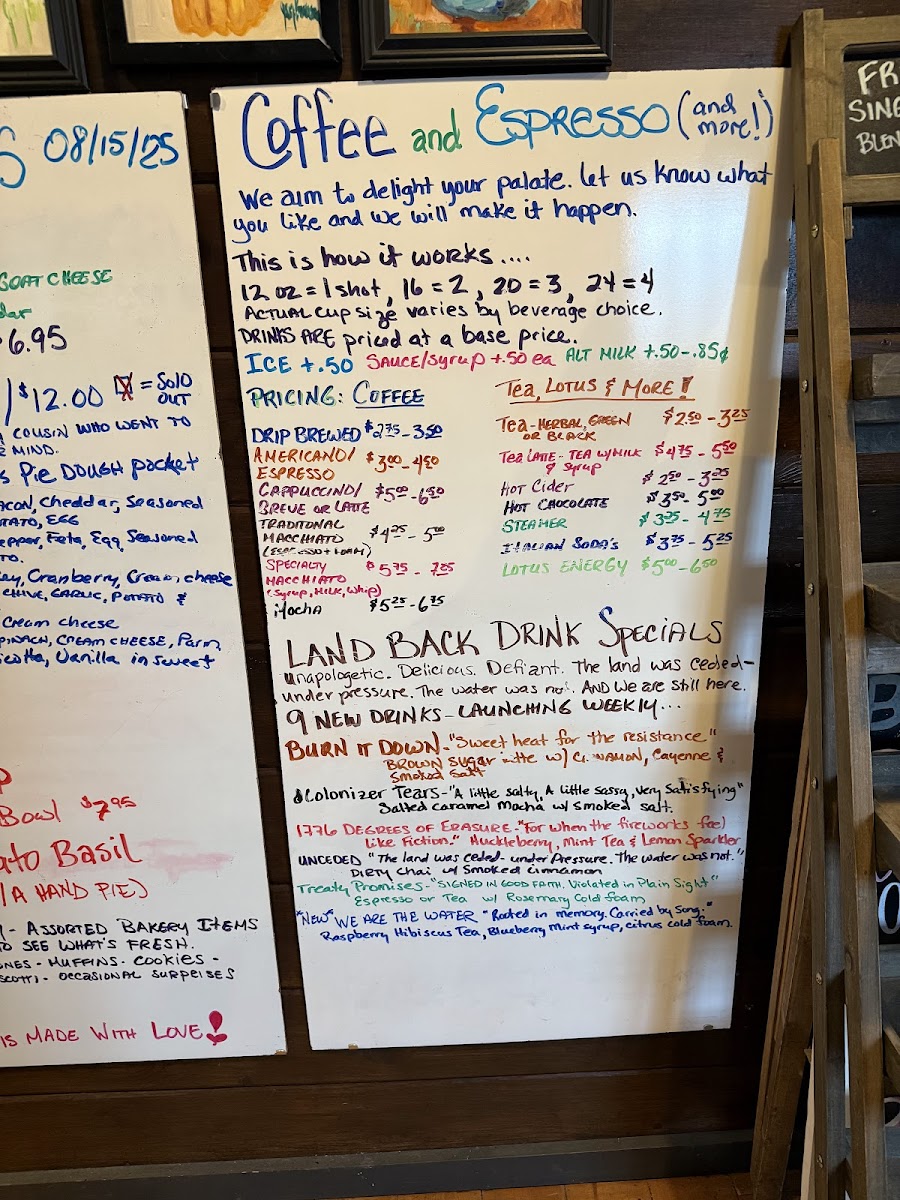 08/15/25
GOAT CHEESE
6.95
/ $12.00 = SOLD OUT
COUSIN WHO WENT TO
MIND.
PIE DOUGH POCKET
Cheddar, Seasoned
EGG
Feta, Egg, Seasoned
Cranberry, Cream cheese
CHIVE, GARLIC, POTATO &
Cream cheese
CREAM CHEESE, Parm
Vanilla in sweet
Bowl $7.95
Basil
A HAND PIE)
- ASSORTED BAKERY ITEMS
SEE WHAT'S FRESH.
MUFFINS. COOKIES -
OCCASIONAL SURPRISES
IS MADE WITH LOVE!
Coffee and ESPRESSO (and more!)
We aim to delight your palate. Let us know what
you like and we will make it happen.
This is how it works ....
12 oz = 1 shot, 16 = 2, 20 = 3, 24 = 4
ACTUAL cup size varies by beverage choice.
DRINKS ARE priced at a base price.
ICE +.50 SAUCE/Syrup +.50 ea ALT MILK +.50-.85¢
PRICING: COFFEE
DRIP BREWED $2.75 - 3.50
AMERICANO/ $3.00 - 4.50
ESPRESSO
CAPPUCCINO/ $5.00 - 6.50
BREVE OR LATTE
TRADITONAL
MACCHIATO $4.25 - 5.00
(ESPRESSO + FOAM)
SPECIALTY $5.75 - 7.25
MACCHIATO
(Syrup, MILK, Whip)
Mocha $5.25 - 6.75
Tea, LOTUS & MORE!
Tea - HERBAL, GREEN $2.50 - 3.25
OR BLACK
Tea LATE - TEA W/MILK $4.75 - 5.50
& Syrup
HOT Cider $2.50 - 3.25
HOT CHOCOLATE $3.50 - 5.00
STEAMER $3.25 - 4.75
ITALIAN SODA'S $3.75 - 5.25
LOTUS ENERGY $5.00 - 6.50
LAND BACK DRINK SPECIALS
Unapologetic. Delicious. Defiant. The land was ceded-
under pressure. The water was not. AND We are still here.
9 NEW DRINKS - LAUNCHING WEEKLY...
BURN IT DOWN - "Sweet heat for the resistance"
BROWN SUGAR w/ Cinnamon, Cayenne &
Smoked Salt
Colonizer Tears - "A little salty, A little sassy, Very Satisfying"
Salted caramel Mocha w/ smoked salt.
1776 DEGREES OF ERASURE - "For when the fireworks feel
like Fiction." Huckleberry, Mint Tea & Lemon Sparkler
UNCEDED "The land was ceded- under Pressure. The water was not."
DIRTY Chai w/ Smoked Cinnamon
Treaty Promises - "SIGNED IN GOOD FAITH. Violated in Plain Sight"
Espresso or Tea w/ Rosemary Cold foam
*NEW* WE ARE THE WATER "Rooted in memory. Carried by Song."
Raspberry Hibiscus Tea, Blueberry Mint syrup, citrus cold foam.